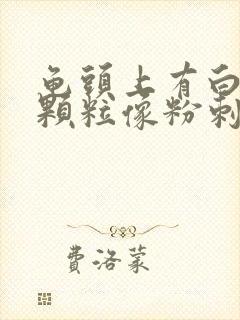 龟頭上有白
顆粒像粉刺
費洛蒙